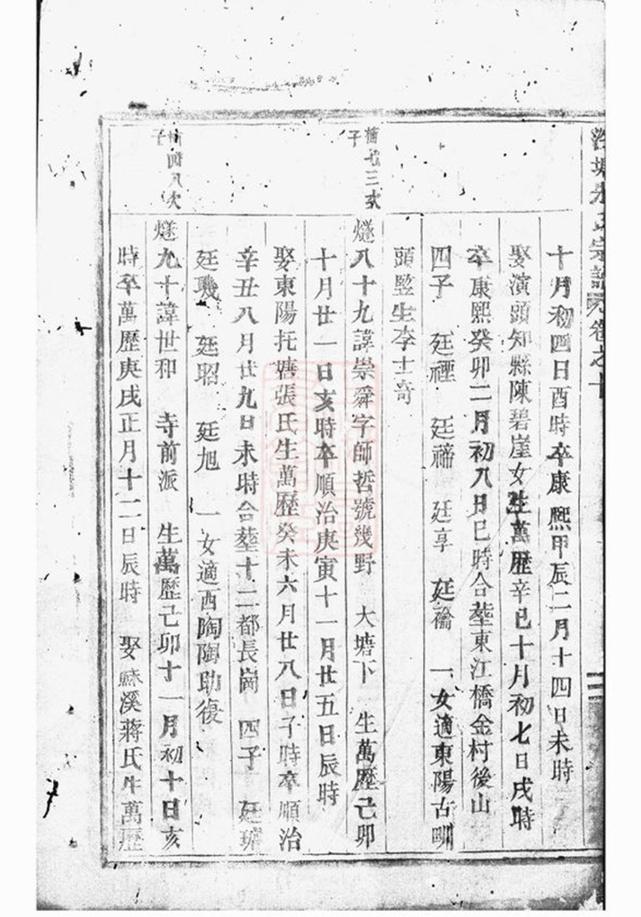 宗譜卷之十
十月初四日酉時卒康熙甲辰二月十四日未時
娶演頭知縣陳碧崖女生萬歷辛巳十月初七日戌時
卒康熙癸卯二月初八日巳時合塟東江橋金村後山
四子 廷禋 廷禘 廷享 廷禴 一女適東陽古㘭
頭監生李士奇
橋七三次子
燧八十九諱崇舜字師哲號幾野 大塘下 生萬歷己卯
十月廿一日亥時卒順治庚寅十一月廿五日辰時
娶東陽托塘張氏生萬歷癸未六月廿八日子時卒順治
辛丑八月廿九日未時合塟十二都長崗 四子 廷璸
廷璣 廷昭 廷旭 一女適西陶陶助復
八次子
燧九十諱世和 寺前派 生萬歷己卯十一月初十日亥
時卒萬歷庚戌正月十二日辰時 娶蘇溪蔣氏生萬歷